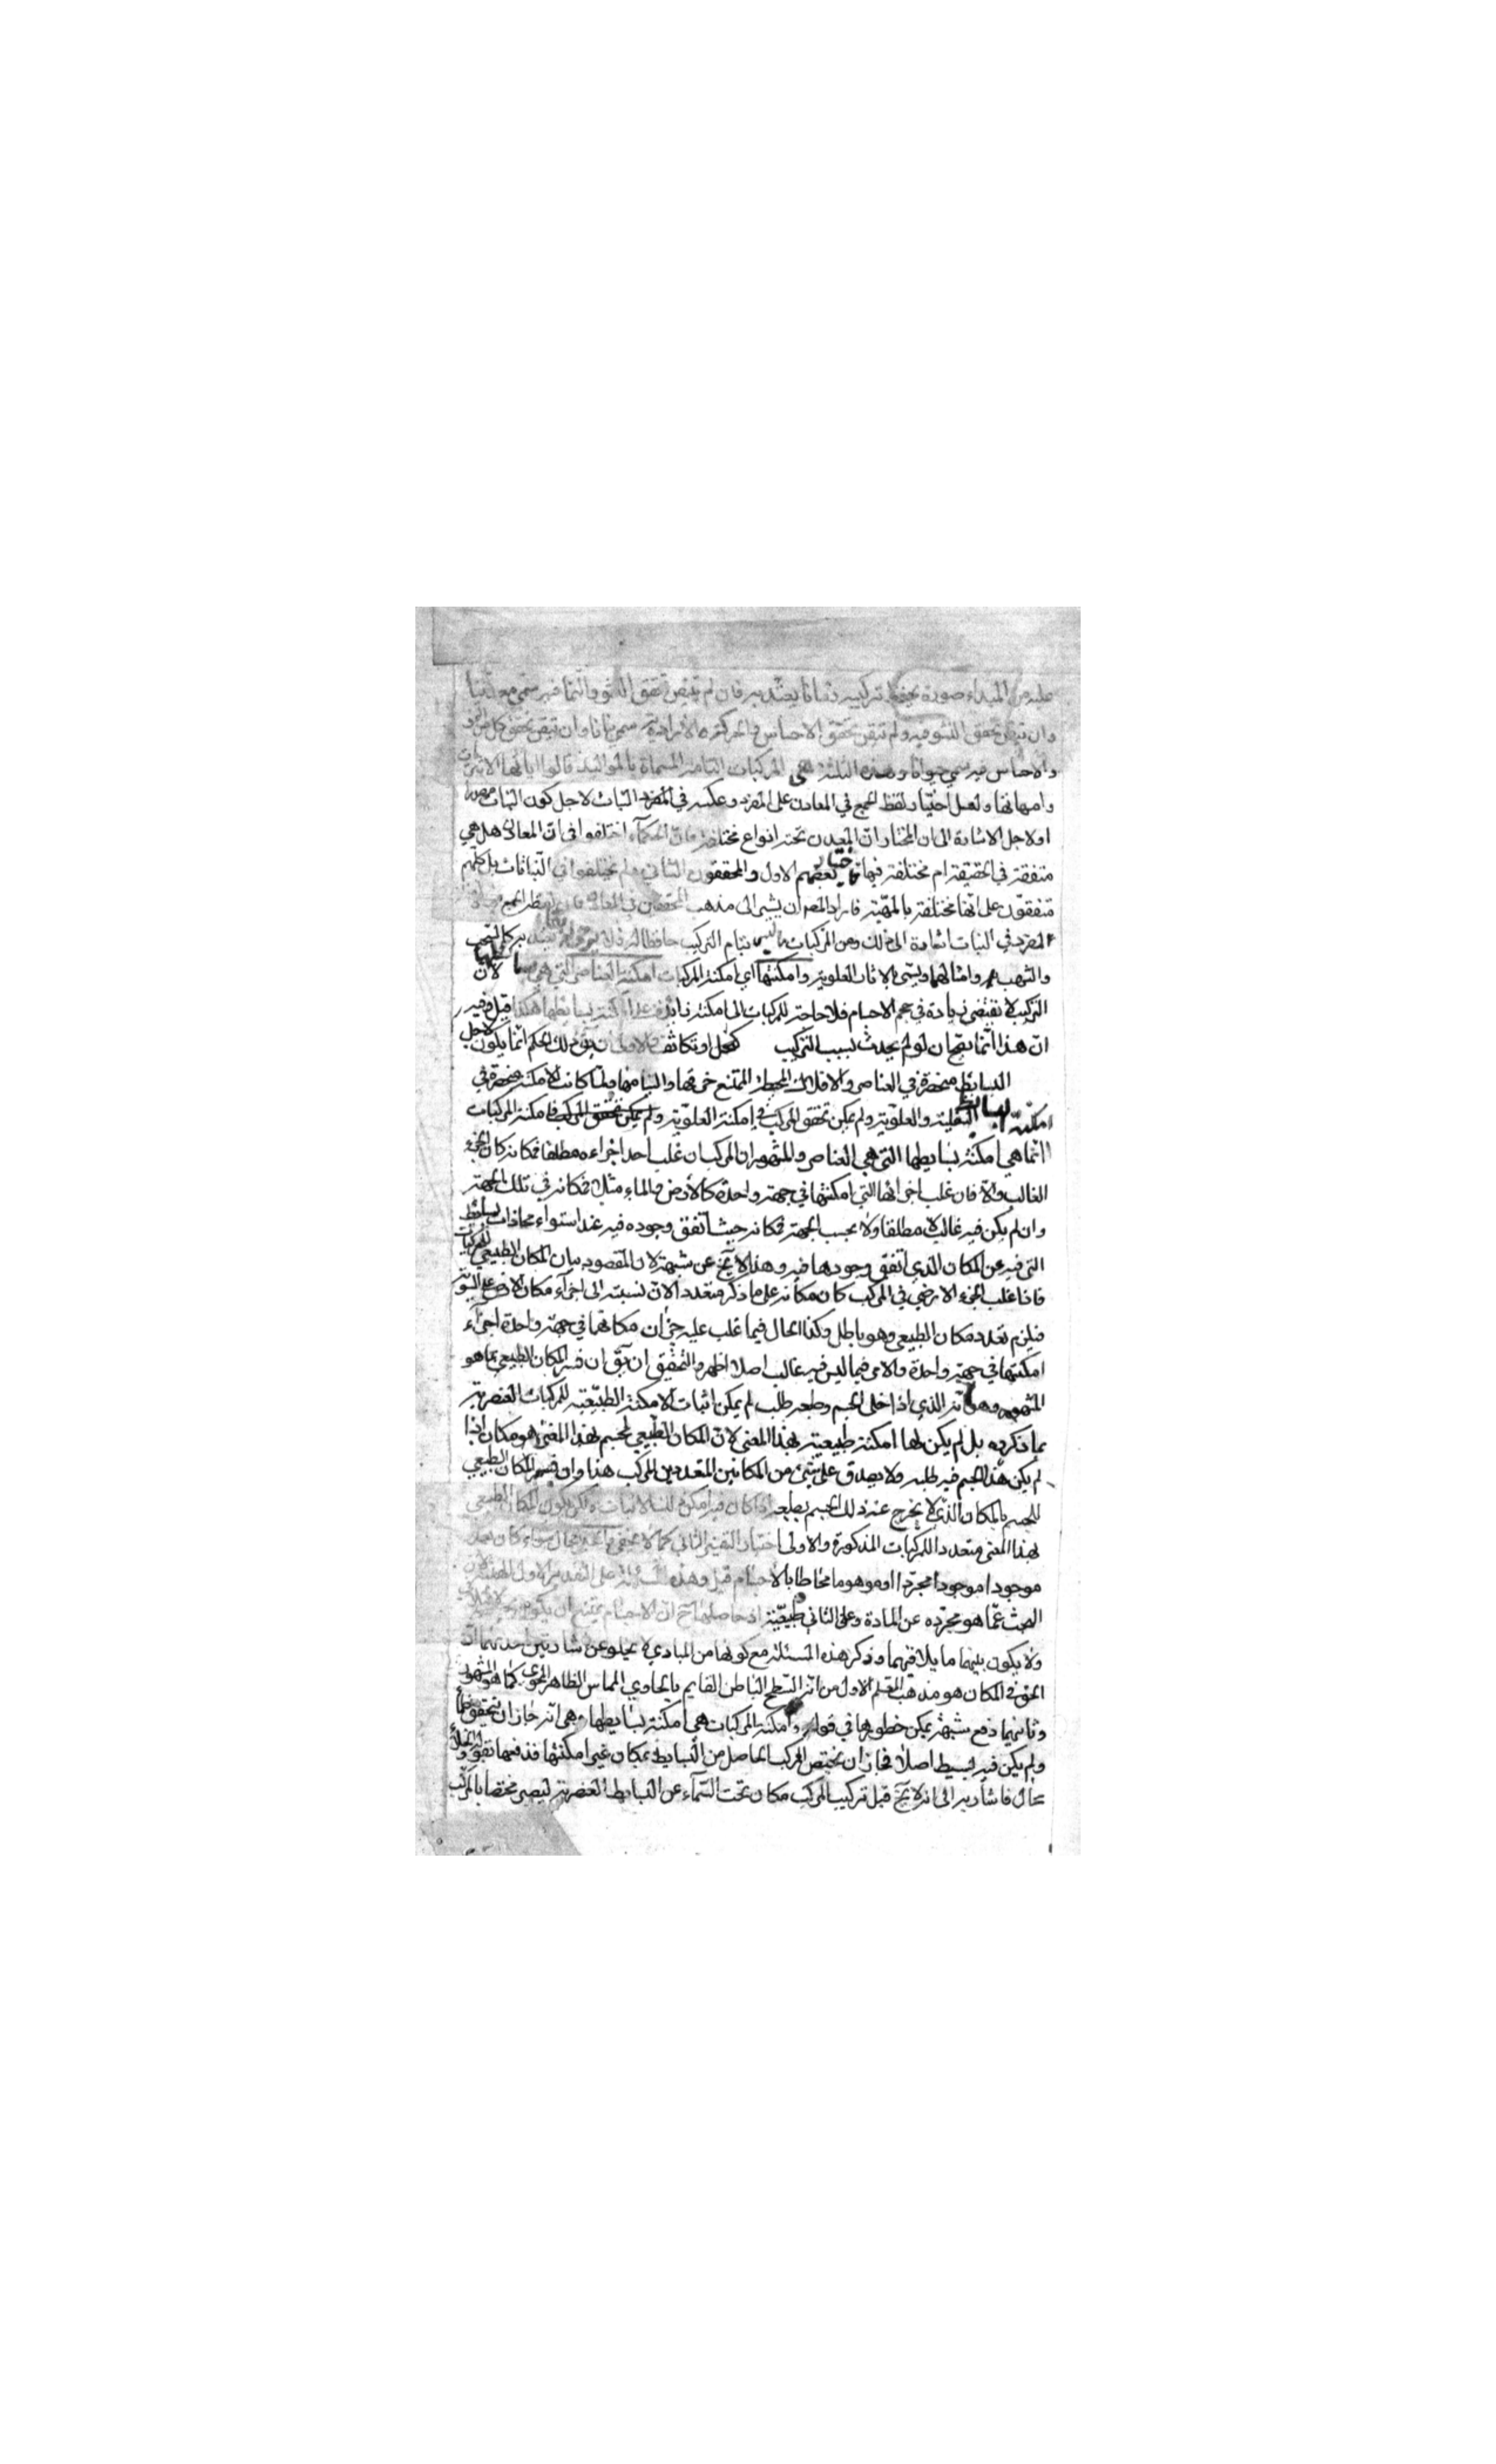 عليه من المبداء صورة يحفظ تركيبه زمانا يعتد به فان لم يتيقن تحقق النشو والنما فيه سمي معدنيا
وان تيقن تحقق النشو فيه ولم تيقن تحقق الاحساس والحركة الارادية سمي نباتا وان تيقن تحقق كل
والاحساس فيه سمي حيوانا وهذه الثلثة هي المركبات التامة المسماة بالمواليد قالوا اباؤها
وامهاتها ولعل اختيار لفظ الجمع في المعادن على المفرد وعكسه في المفرد النبات لاجل كون النبات مصدرا
اولاجل الاشارة الى ان المختار ان المعدن تحته انواع مختلفة فان الحكماء اختلفوا في ان المعادن هل هي
متفقة في الحقيقة ام مختلفة فيها فاختار بعضهم الاول والمحققون الثاني ولم يختلفوا في النباتات بل كلهم
متفقون على انها مختلفة بالمهية فاراد المصـ ان يشير الى مذهب المحققين في المعادن بلفظ الجمع
المفرد في النبات اشارة الى ذلك ومن المركبات ما ليس بتام التركيب حافظا له زمانا يعتد به كالسحب
والشهب وامثالهما ويسمى الاثار العلوية وامكنتها اي امكنة المركبات امكنة العناصر التي هي بسايطها لان
التركيب لا يقتضي زيادة في حجم الاجسام فلا حاجة للمركبات الى امكنة زائدة على امكنة بسائطها هكذا قيل وفيه
ان هذا انما يتم ان لو لم يحدث بسبب التركيب تخلخل او تكاثف والاولى ان يقـ ذلك الحكم انما يكون لاجل
البسائط منحصرة في العناصر والافلاك المحيطة الممتنع خرقها والتيامها ولما كانت الامكنة منحصرة في
امكنة البسائط السفلية والعلوية ولم يمكن تحقق المركب في امكنة العلوية ولم يمكن تحقق المركب فامكنة المركبات
انما هي امكنة بسايطها التي هي العناصر والمشهور ان المركب ان غلب احد اجزاءه مطلقا فمكانه مكان الجزء
الغالب والا فان غلب اجزائها التي امكنتها في جهة واحدة كالارض والماء مثلا فمكانه في تلك الجهة
وان لم يكن فيه غالب لا مطلقا ولا بحسب الجهة فمكانه حيث اتفق وجوده فيه عند استواء محاذات بسائط
التي فيه عن المكان الذي اتفق وجودها فيه وهذا لا يخ عن شبهة لان المقصود بيان المكان الطبيعي للمركبات
فاذا غلب الجزء الارضي في المركب كان مكانه على ما ذكر متعددا لان نسبته الى اجزاء مكان الارض على السوية
فيلزم تعدد مكان الطبيعي وهو باطل وكذا الحال فيما غلب عليه جزءان مكانهما في جهة واحدة اجزاء
امكنتها في جهة واحدة والامر فيما ليس فيه غالب اصلا اظهر والتحقيق ان يقـ ان فسر المكان الطبيعي بما هو
المشهور وهو انه الذي اذا خلى الجسم وطبعه طلبه لم يمكن اثبات الامكنة الطبيعية للمركبات العنصرية
بما ذكروه بل لم يكن لها امكنة طبيعية بهذا المعنى لان المكان الطبيعي للجسم بهذا المعنى هو مكان اذا
لم يكن هذا الجسم فيه طلبه ولا يصدق على شيء من المكانين المتعددين للمركب هذا وان فسر المكان الطبيعي
للجسم بالمكان الذي لا يخرج عنه ذلك الجسم بطبعه اذا كان فيه امكن ذلك الاثبات ولكن يكون المكان الطبيعي
بهذا المعنى متعددا للمركبات المذكورة والاولى اختيار التفسير الثاني كما لا يخفى والخلاء محال سواء كان بعدا
موجودا موجودا مجردا او موهوما محاطا بالاجسام قيل وهذه المسئلة على التقدير الاول الهية لان
البحث عما هو مجرده عن المادة وعلى الثاني طبيعية اذ حاصلها ح ان الاجسام يمتنع ان يكون بحيث لا يتلاقى
ولا يكون بينهما ما يلاقيهما وذكر هذه المسئلة مع كونها من المبادي لا يخلو عن اشارتين احديهما ان
الحق في المكان هو مذهب المعلم الاول من انه السطح الباطن القايم بالحاوي المماس الظاهر المحوي كما هو المشهور
وثانيهما دفع شبهة يمكن خطورها في قوله وامكنة المركبات هي امكنة بسايطها وهي انه جاز ان يتحقق خلأ
ولم يكن فيه بسيط اصلا فجاز ان يختص المركب الحاصل من البسايط بمكان غير امكنتها فدفعها بقوله والخلأ
محال فاشار به الى انه لا يخ قبل تركيب المركب مكان تحت السماء عن البسايط العنصرية ليصير مختصا بالمركب